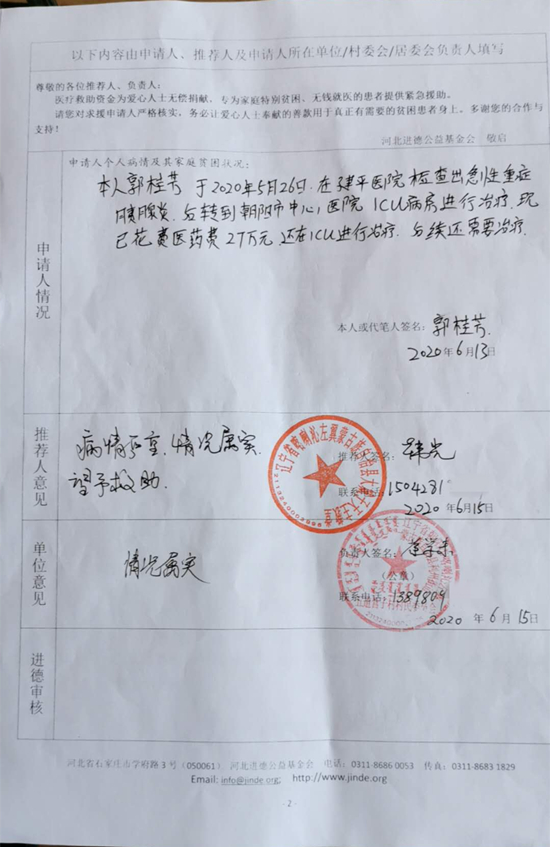 以下内容由申请人、推荐人及申请人所在单位/村委会/居委会负责人填写
尊敬的各位推荐人、负责人:
医疗救助资金为爱心人士无偿捐献,专为家庭特别贫困、无钱就医的患者提供紧急援助。
请您对求援申请人严格核实,务必让爱心人士奉献的善款用于真正有需要的贫困患者身上。多谢您的合作与
支持!
河北进德公益基金会 敬启
申请人情况
申请人个人病情及其家庭贫困状况:
本人郭桂芳于2020年5月26日.在建平医院检查出急性重症
胰腺炎.后转到朝阳市中心医院ICU病房进行治疗.现
已花费医药费27万元.还在ICU进行治疗.后续还需要治疗.
本人或代笔人签名:郭桂芳.
2020年6月13日
推荐人意见
病情严重.情况属实.
望予救助.
推荐人签名:
联系电话:1504281
2020年6月15日
单位意见
情况属实
负责人签名:
(公章)
联系电话:1389804
2020年6月15日
进德审核
河北省石家庄市学府路3号(050061) 河北进德公益基金会 电话:0311-8686 0053 传真:0311-8683 1829
Email: info@jinde.org; http://www.jinde.org
- 2 -